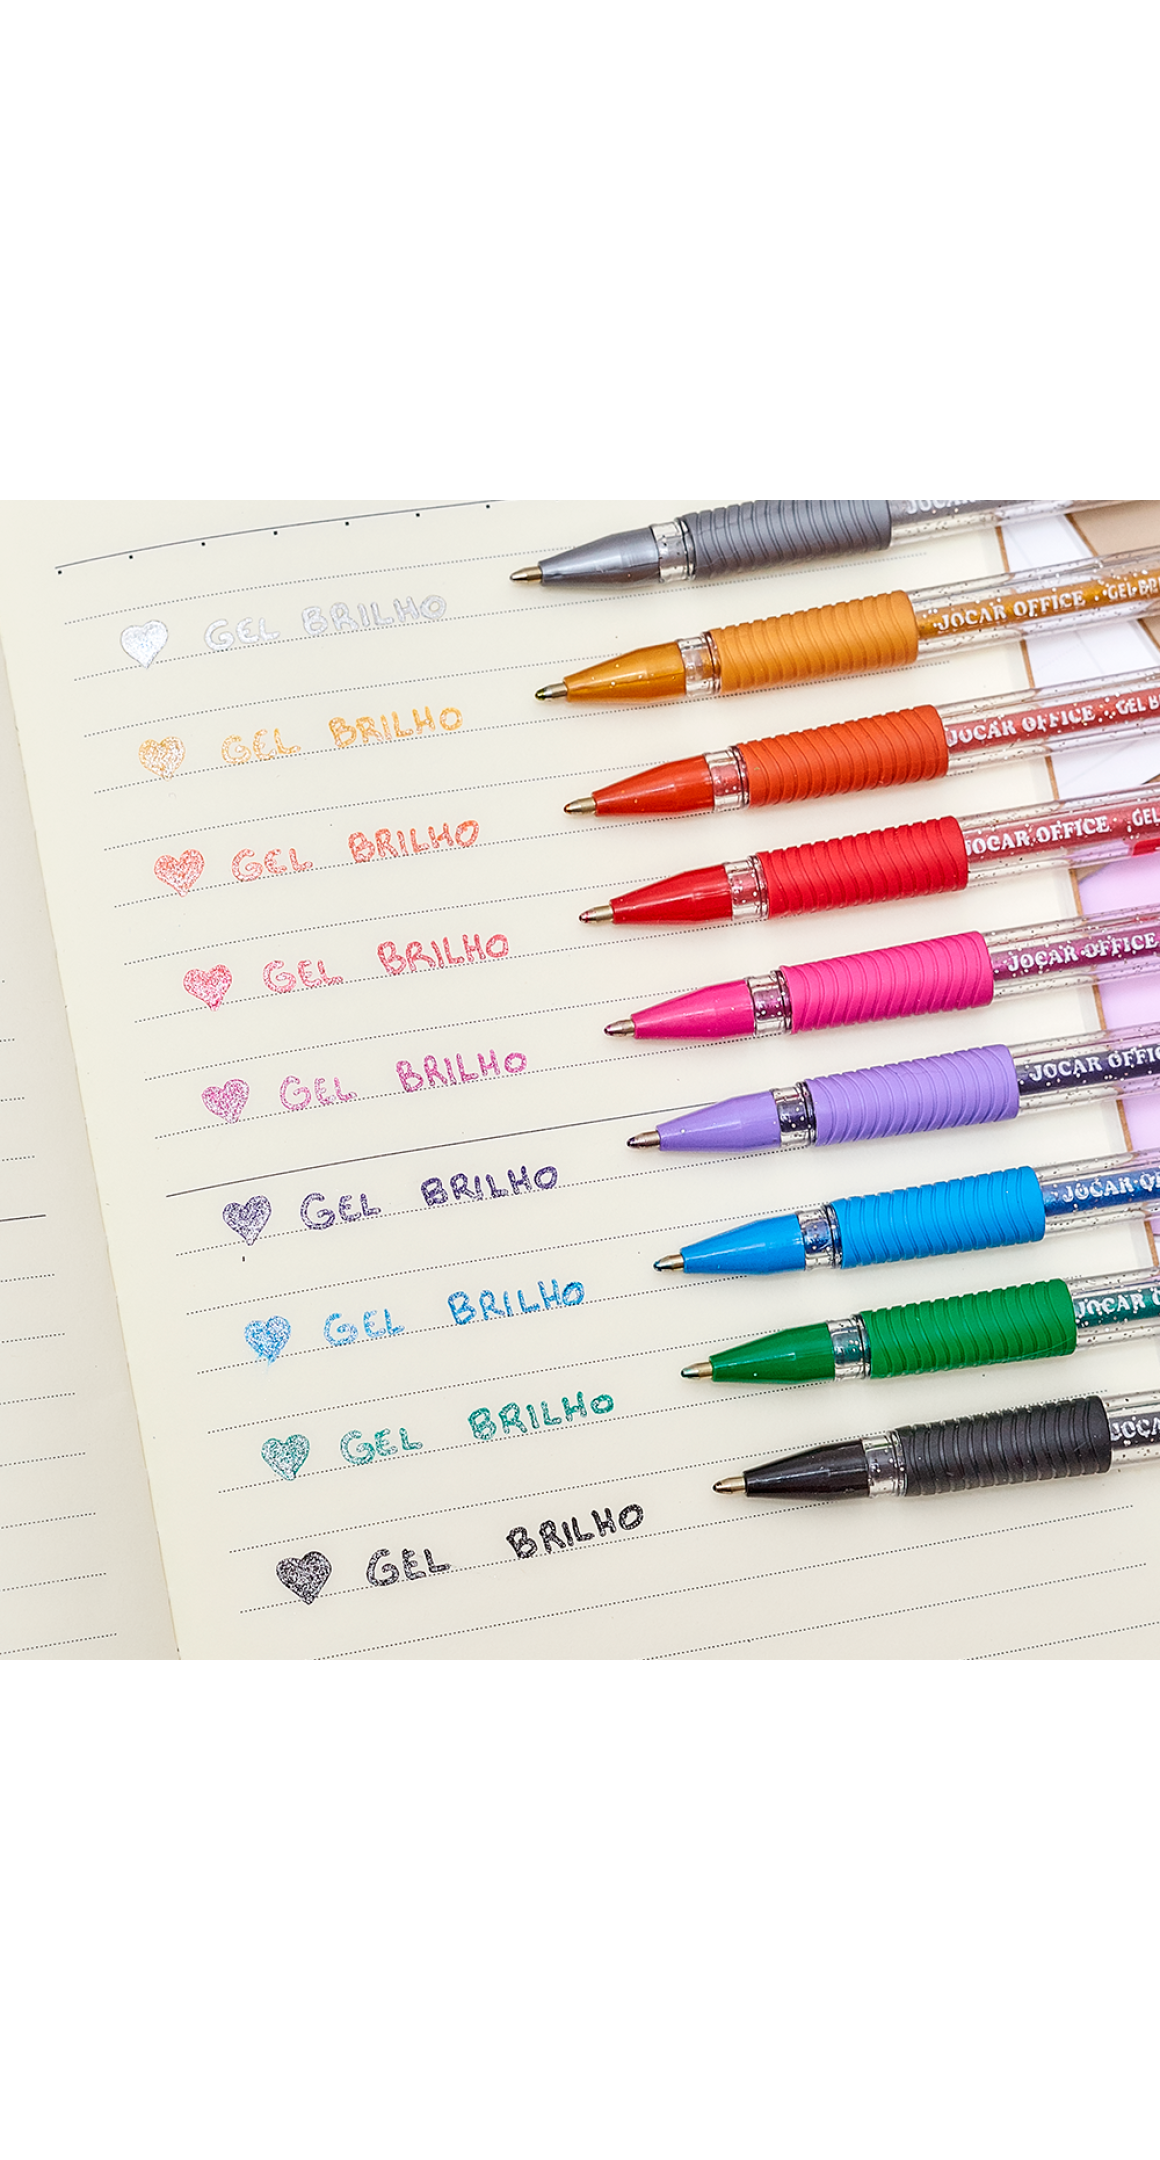 JOCAR
GEL BRILHO
JOCAR OFFICE
GEL BRILHO
JOCAR OFFICE
GEL BRILHO
JOCAR OFFICE GEL
GEL BRILHO
JOCAR OFFICE
GEL BRILHO
JOCAR
GEL BRILHO
JOCAR
GEL BRILHO
JOCAR
GEL BRILHO
GEL BRILHO